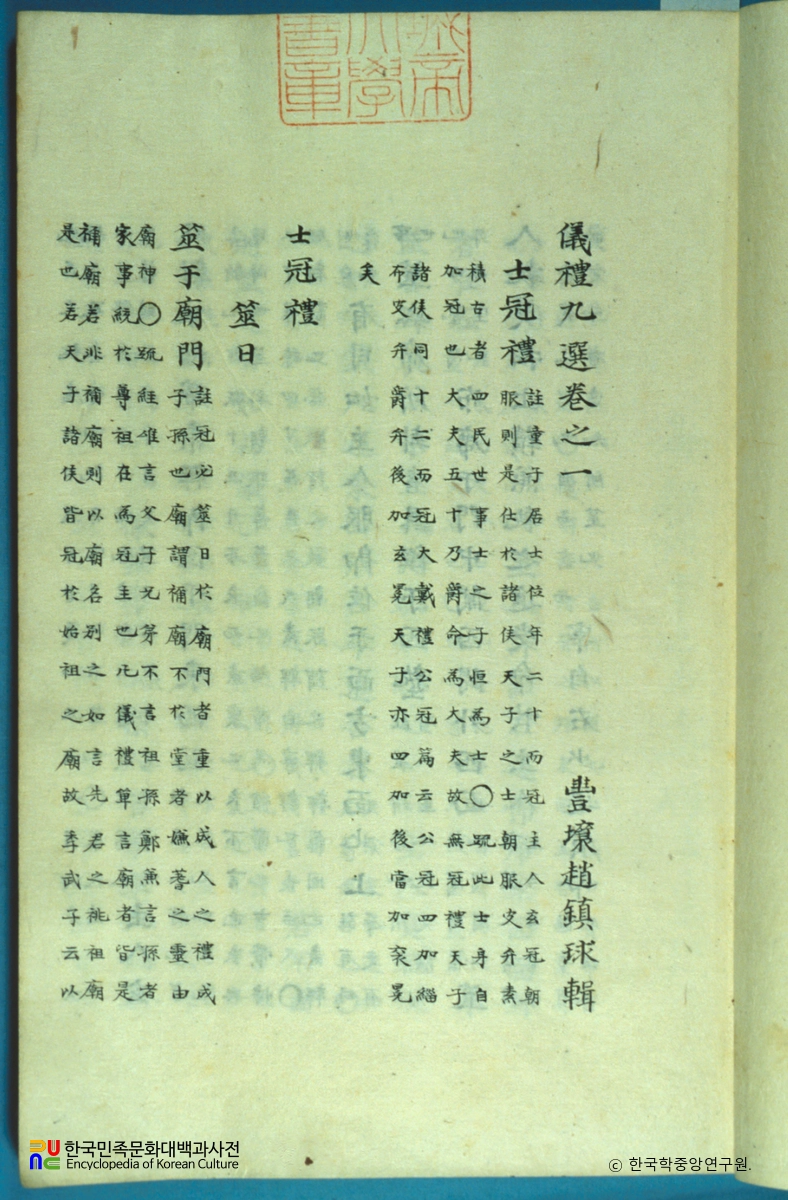 城帝
大學
書章
儀禮九選卷之一 豐壤趙鎮球輯
士冠禮 註童子居士位年二十而冠主人玄冠朝
服則是仕於諸侯天子之士朝服皮弁素
積古者四民世事士之子恒為士〇疏此士身自
加冠也大夫五十乃爵命為大夫故無冠禮天子
諸侯同十二而冠大戴禮公冠篇云公冠四加緇
布皮弁爵弁後加玄冕天子亦四加後當加袞冕
矣
士冠禮
筮日
筮于廟門 註冠必筮日於廟門者重以成人之禮成
子孫也廟謂禰廟不於堂者嫌蓍之靈由
廟神〇疏經唯言父子兄弟不言祖孫鄭兼言孫者
家事統於尊祖在為冠主也凡儀禮單言廟者皆是
禰廟若非禰廟則以廟名別之如言先君之祧祖廟
是也若天子諸侯皆冠於始祖之廟故季武子云以
한국민족문화대백과사전
Encyclopedia of Korean Culture
© 한국학중앙연구원.